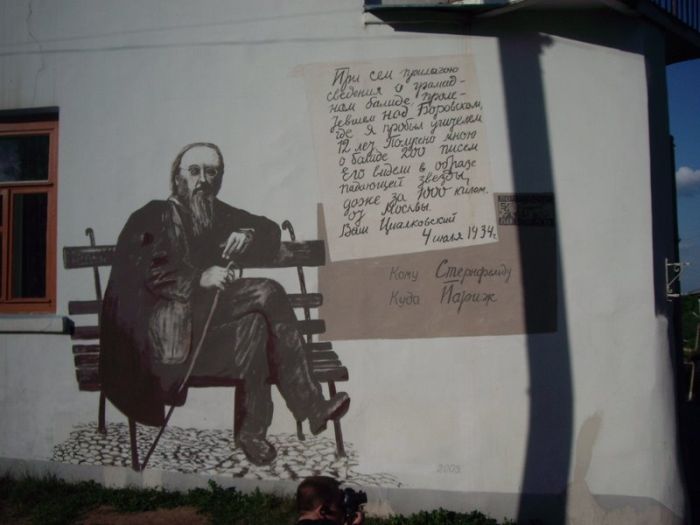 При сем прилагаю
сведения о громад-
нам балиде, проле-
тевшем над Боровском,
где Я пробыл учителем
12 лет. Получено мною
о балиде 200 писем
Его видели в образе
падающей звезды,
даже за 1000 килом.
от Москвы.
Ваш Циалковский
4 июля 1934г.
Кому Стернфельду
Куда Париж
2003